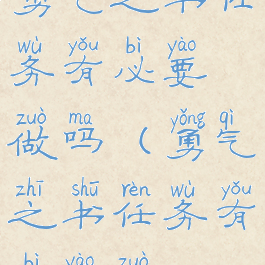 之书任
wù yǒu bì yào
务有必要
zuò ma yǒng qì
做吗（勇气
zhī shū rèn wù yǒu
之书任务有
bì yào zuò